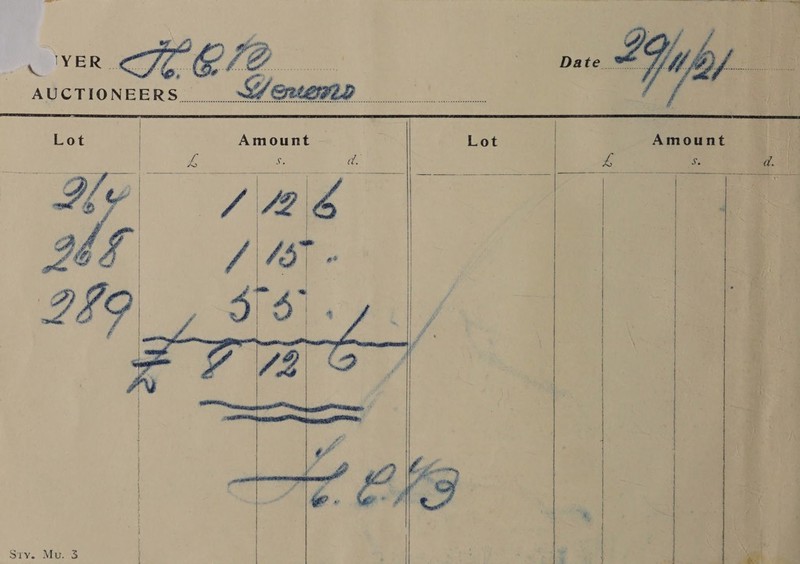 YER H.C.B Date 29/11/21
AUCTIONEERS Stevens
Lot Amount Lot Amount
£ s. d. £ s. d.
264 1 12 6
268 1 15 .
289 5 5 .
£ 8 12 6
H.C.B
Sty. Mu. 3